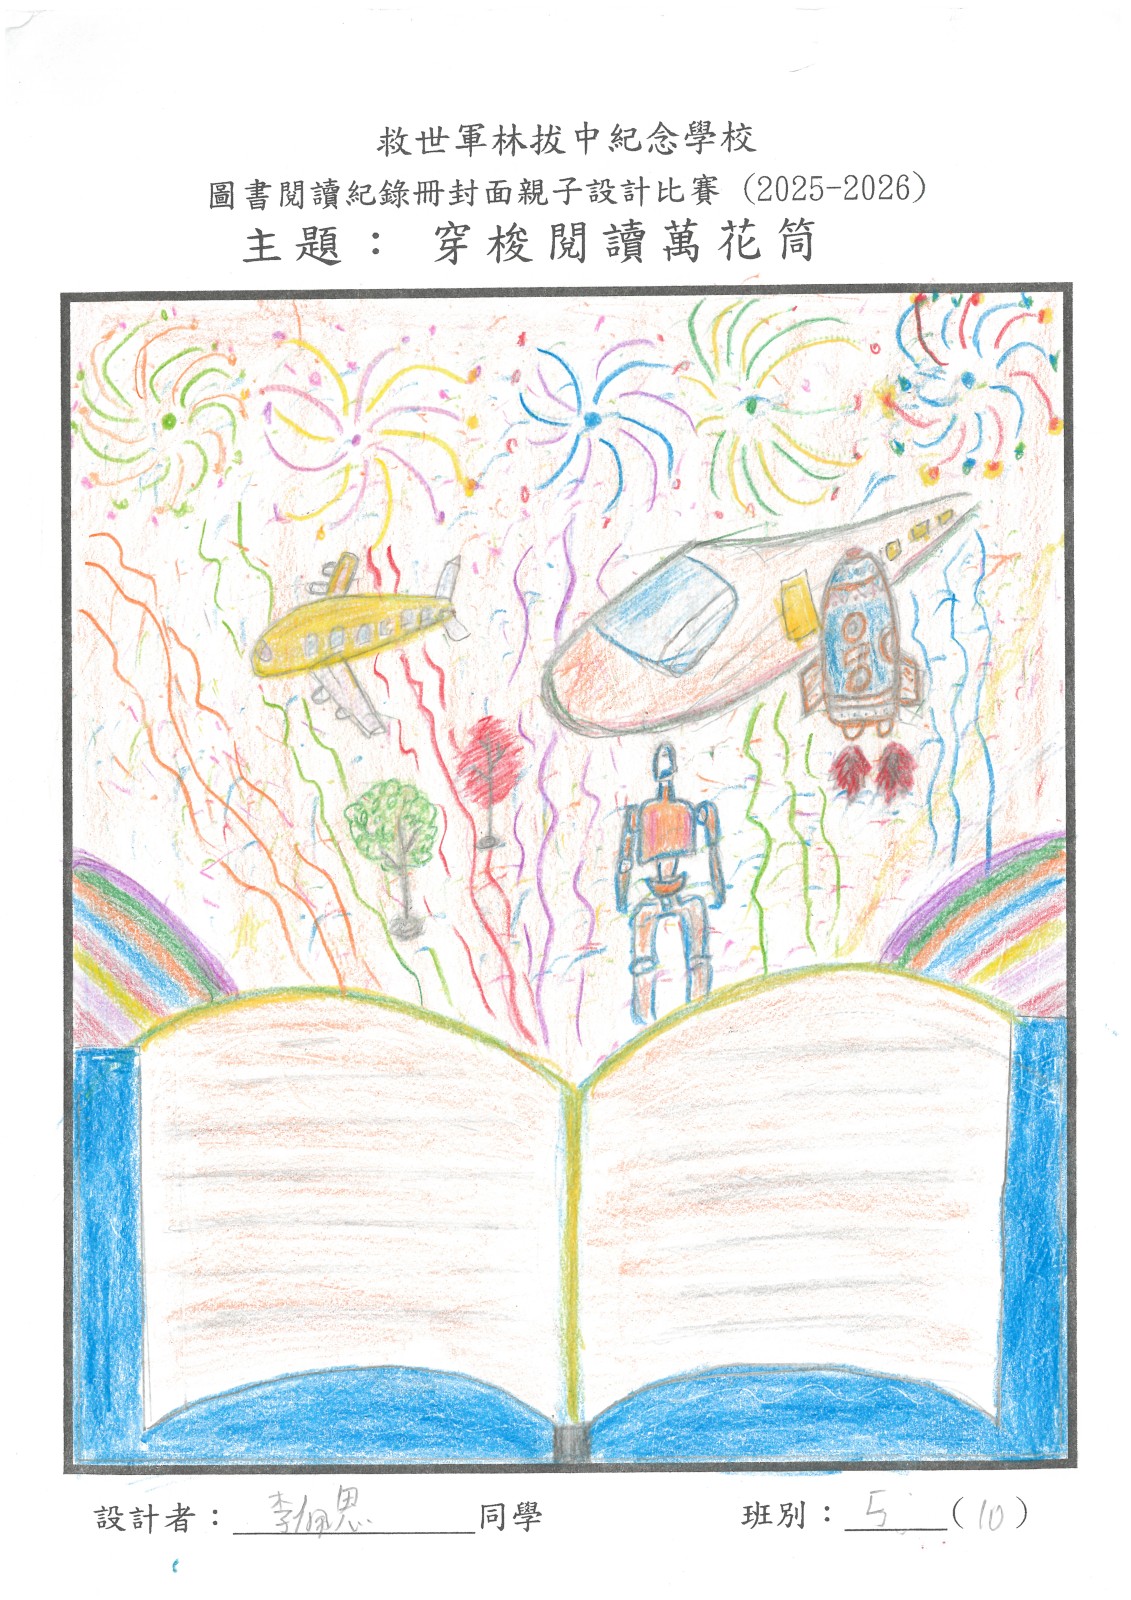 救世軍林拔中紀念學校
圖書閱讀紀錄冊封面親子設計比賽 (2025-2026)
主題： 穿梭閱讀萬花筒
設計者：李佩恩同學 班別：5 (10)